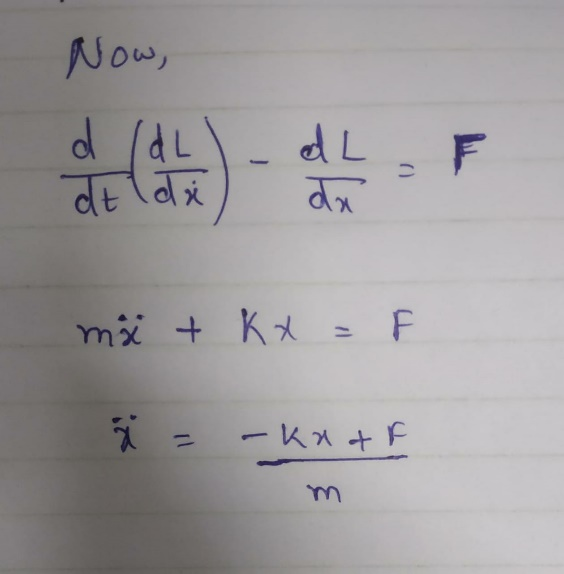 Now,
d/dt (dL/dẋ) - dL/dx = F
mẍ + Kx = F
ẍ = (-Kx + F)/m